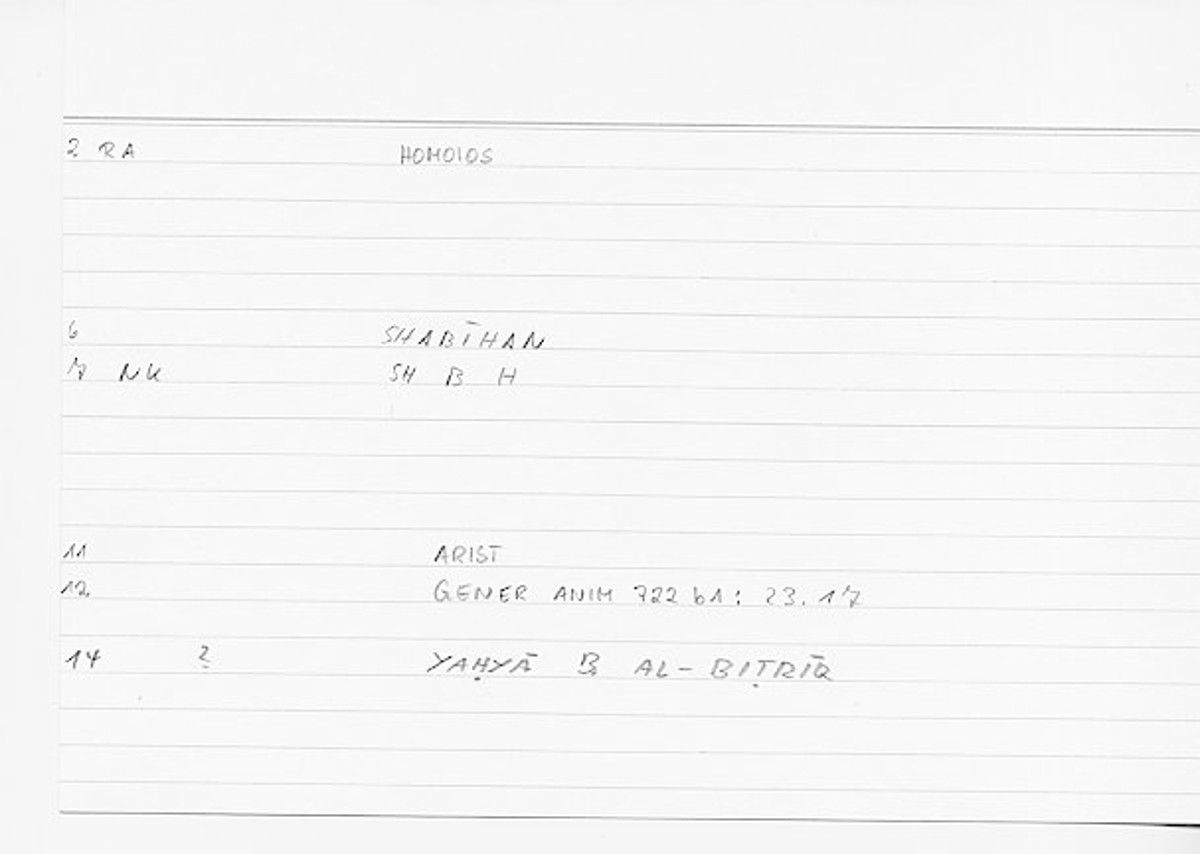 2 RA HOMOIOS
6 SHABĪHAN
7 NK SH B H
11 ARIST
12 GENER ANIM 722 b1 : 23.17
14 ? YAḤYĀ B. AL-BIṬRĪQ